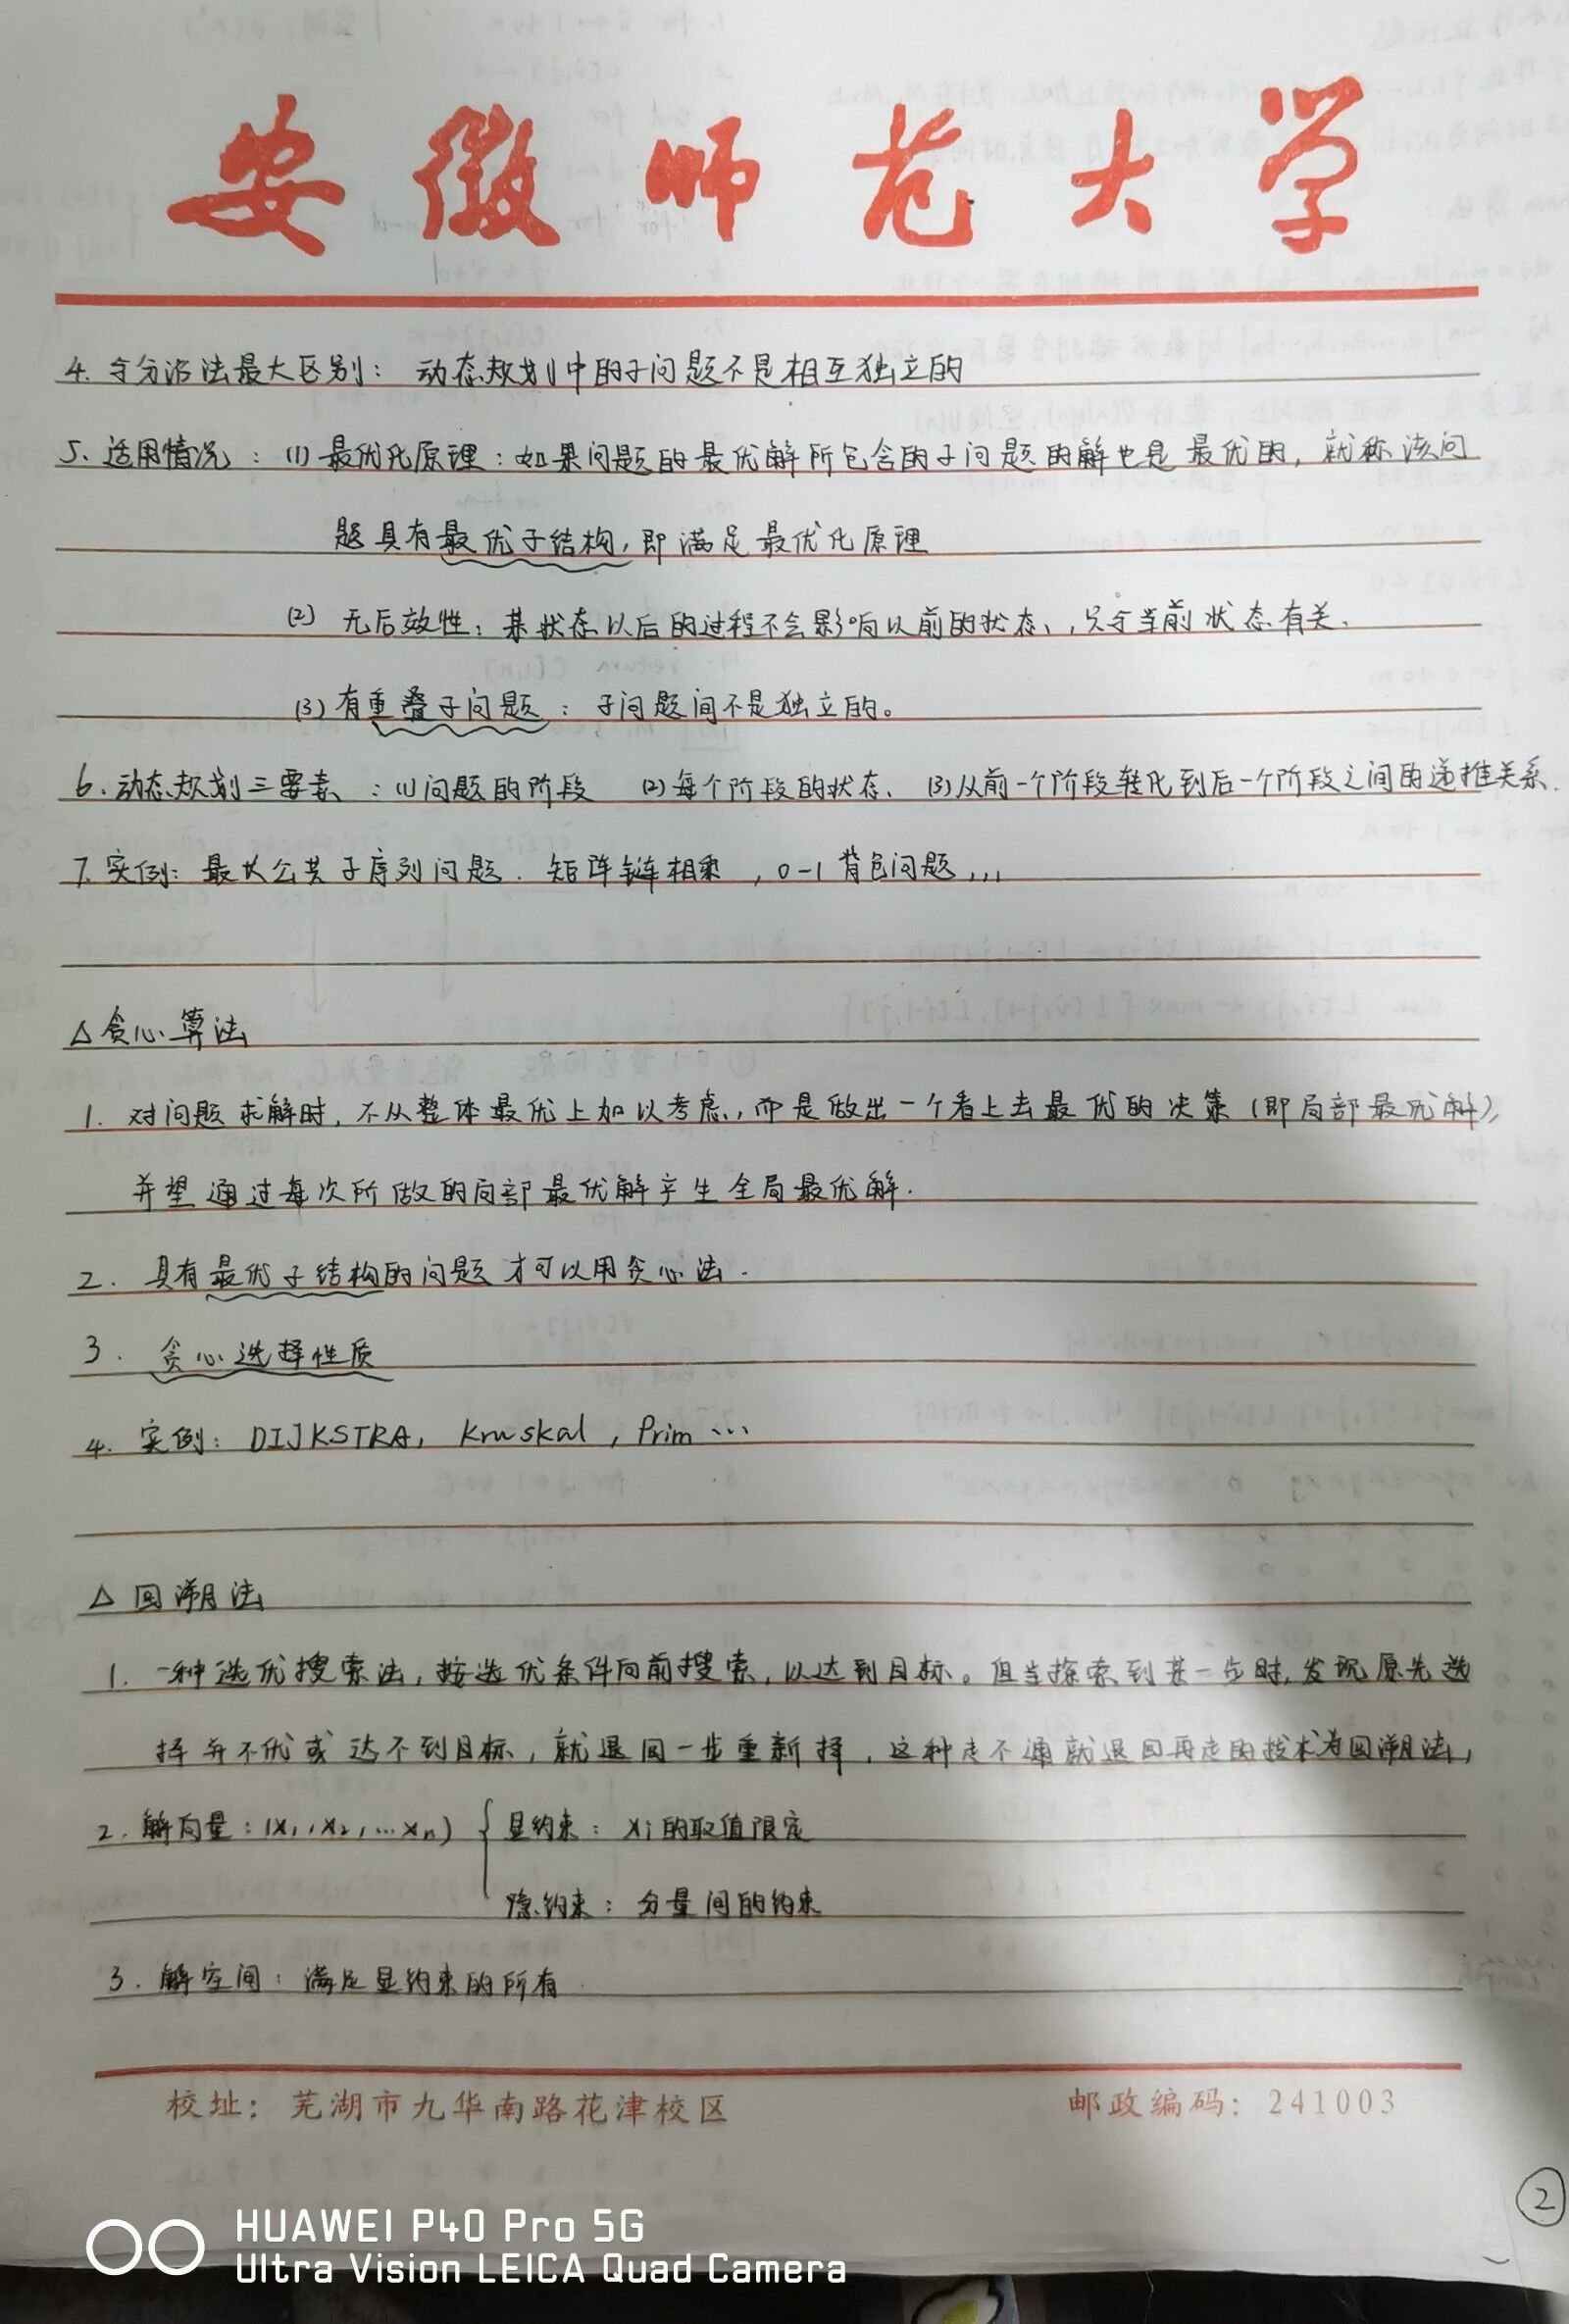 安徽师范大学
4. 与分治法最大区别： 动态规划中的子问题不是相互独立的
5. 适用情况：(1)最优化原理：如果问题的最优解所包含的子问题的解也是最优的，就称该问
题具有最优子结构，即满足最优化原理
(2) 无后效性：某状态以后的过程不会影响以前的状态，只与当前状态有关.
(3) 有重叠子问题：子问题间不是独立的。
6. 动态规划三要素：(1)问题的阶段 (2)每个阶段的状态、(3)从前一个阶段转化到后一个阶段之间的递推关系.
7. 实例：最长公共子序列问题. 矩阵链相乘，0-1背包问题,,,
△贪心算法
1. 对问题求解时，不从整体最优上加以考虑，而是做出一个看上去最优的决策（即局部最优解），
并望通过每次所做的局部最优解产生全局最优解.
2. 具有最优子结构的问题才可以用贪心法.
3. 贪心选择性质
4. 实例：DIJKSTRA, Kruskal, Prim …
△ 回溯法
1. 一种选优搜索法，按选优条件向前搜索，以达到目标。但当探索到某一步时，发现原先选
择并不优或达不到目标，就退回一步重新择，这种走不通就退回再走的技术为回溯法，
2. 解向量：(x1, x2, …xn) { 显约束：xi的取值限定
隐约束：分量间的约束
3. 解空间：满足显约束的所有
校址：芜湖市九华南路花津校区 邮政编码：241003
2
HUAWEI P40 Pro 5G
Ultra Vision LEICA Quad Camera